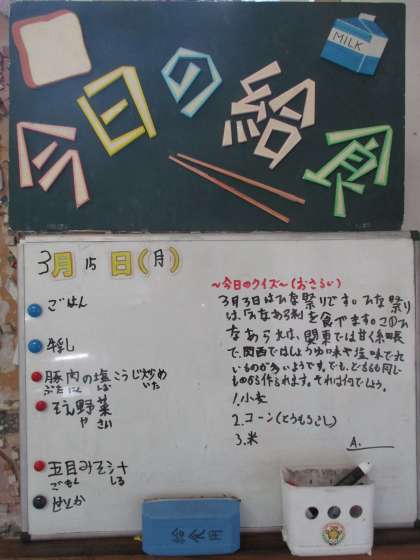 MILK
今日の給食
3月15日(月)
ごはん
牛乳
豚肉の塩こうじ炒め
ぶたにく しお いた
元気野菜
やさい
五目みそ汁
ごもく しる
せとか
～今日のクイズ～(おさらい)
3月3日はひな祭りです。ひな祭り
は、「ひなあられ」を食べます。この
なあられは、関東では甘く
で、関西ではしょうゆ味や塩味で丸
いものが多いようです。でも、どちらも同じ
ものから作られます。それは何でしょう。
1.小麦
2.コーン(とうもろこし)
3.米
A.
給食用